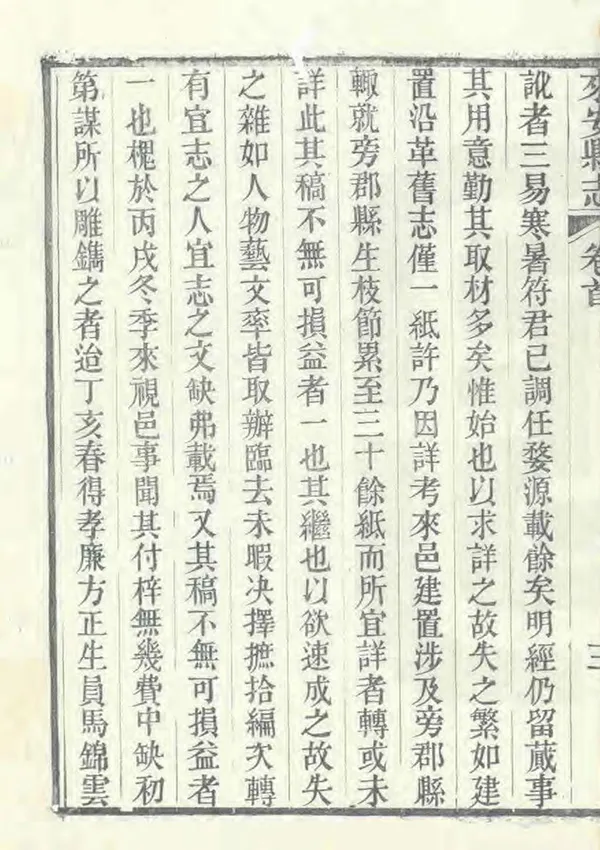 來安縣志
卷首
三
訛者三易寒暑符君已調任婺源載餘矣明經仍留蕆事
其用意勤其取材多矣惟始也以求詳之故失之繁如建
置沿革舊志僅一紙許乃因詳考來邑建置涉及旁郡縣
輙就旁郡縣生枝節累至三十餘紙而所宜詳者轉或未
詳此其稿不無可損益者一也其繼也以欲速成之故失
之雜如人物藝文率皆取辦臨去未暇决擇摭拾編次轉
有宜志之人宜志之文缺弗載焉又其稿不無可損益者
一也榥於丙戌冬季來視邑事聞其付梓無幾費中缺初
第謀所以雕鐫之者迨丁亥春得孝廉方正生員馬錦雲